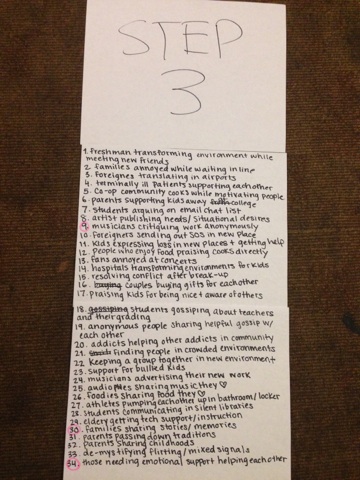 STEP
3
1. freshman transforming environment while
meeting new friends
2. families annoyed while waiting in line
3. foreignes translating in airports
4. terminally ill patients supporting each other
5. Co-op community cooks while motivating people
6. parents supporting kids away college
7. students arguing on email chat list
8. artist publishing needs/ situational desires
9. musicians critiquing work anonymously
10. foreigners sending out SOS in new place
11. kids expressing loss in new places + getting help
12. people who enjoy food praising cooks directly
13. fans annoyed at concerts
14. hospitals transforming environments for kids
15. resolving conflict after break-up
16. couples buying gifts for each other
17. praising kids for being nice + aware of others
18. gossiping students gossiping about teachers
and their grading
19. anonymous people sharing helpful gossip w/
each other
20. addicts helping other addicts in community
21. finding people in crowded environments
22. keeping a group together in new environment
23. support for bullied kids
24. musicians advertising their new work
25. audiophiles sharing music they ♡
26. foodies sharing food they ♡
27. athletes pumping each other up in bathroom/locker
28. students communicating in silent libraries
29. eldery getting tech support/instruction
30. families sharing stories/ memories
31. parents passing down traditions
32. parents sharing childhoods
33. de-mystifying flirting/mixed signals
34. those needing emotional support helping each other